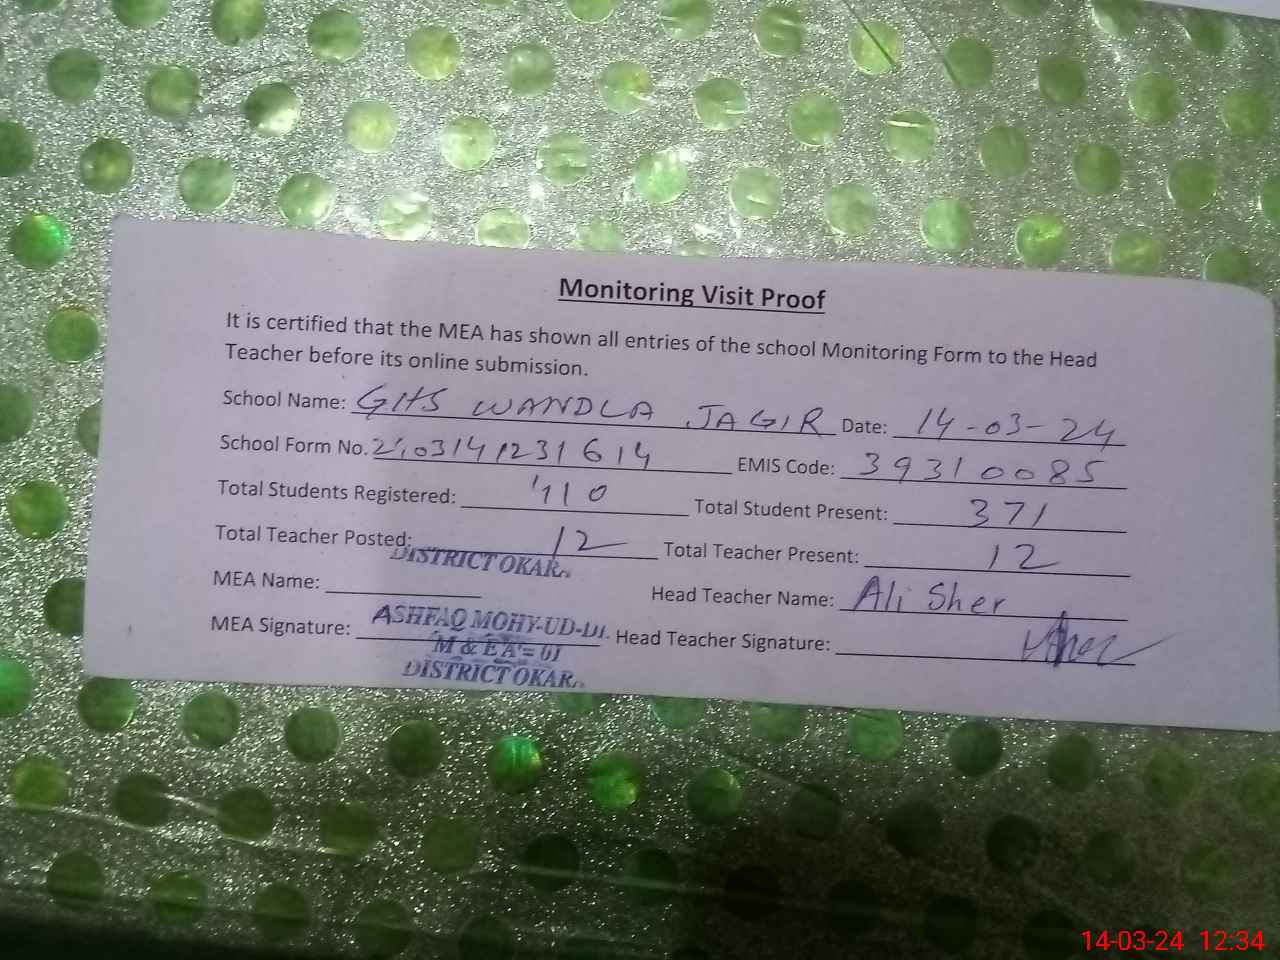 Monitoring Visit Proof
It is certified that the MEA has shown all entries of the school Monitoring Form to the Head
Teacher before its online submission.
School Name: GHS WANDLA JAGIR Date: 14-03-24
School Form No. EMIS Code: 39310085
Total Students Registered: Total Student Present: 371
Total Teacher Posted: 12 Total Teacher Present: 12
DISTRICT
MEA Name: Head Teacher Name: Ali Sher
ASHFAQ MOHY-UD-DI
MEA Signature: Head Teacher Signature:
M & EA = 01
DISTRICT
14-03-24 12:34